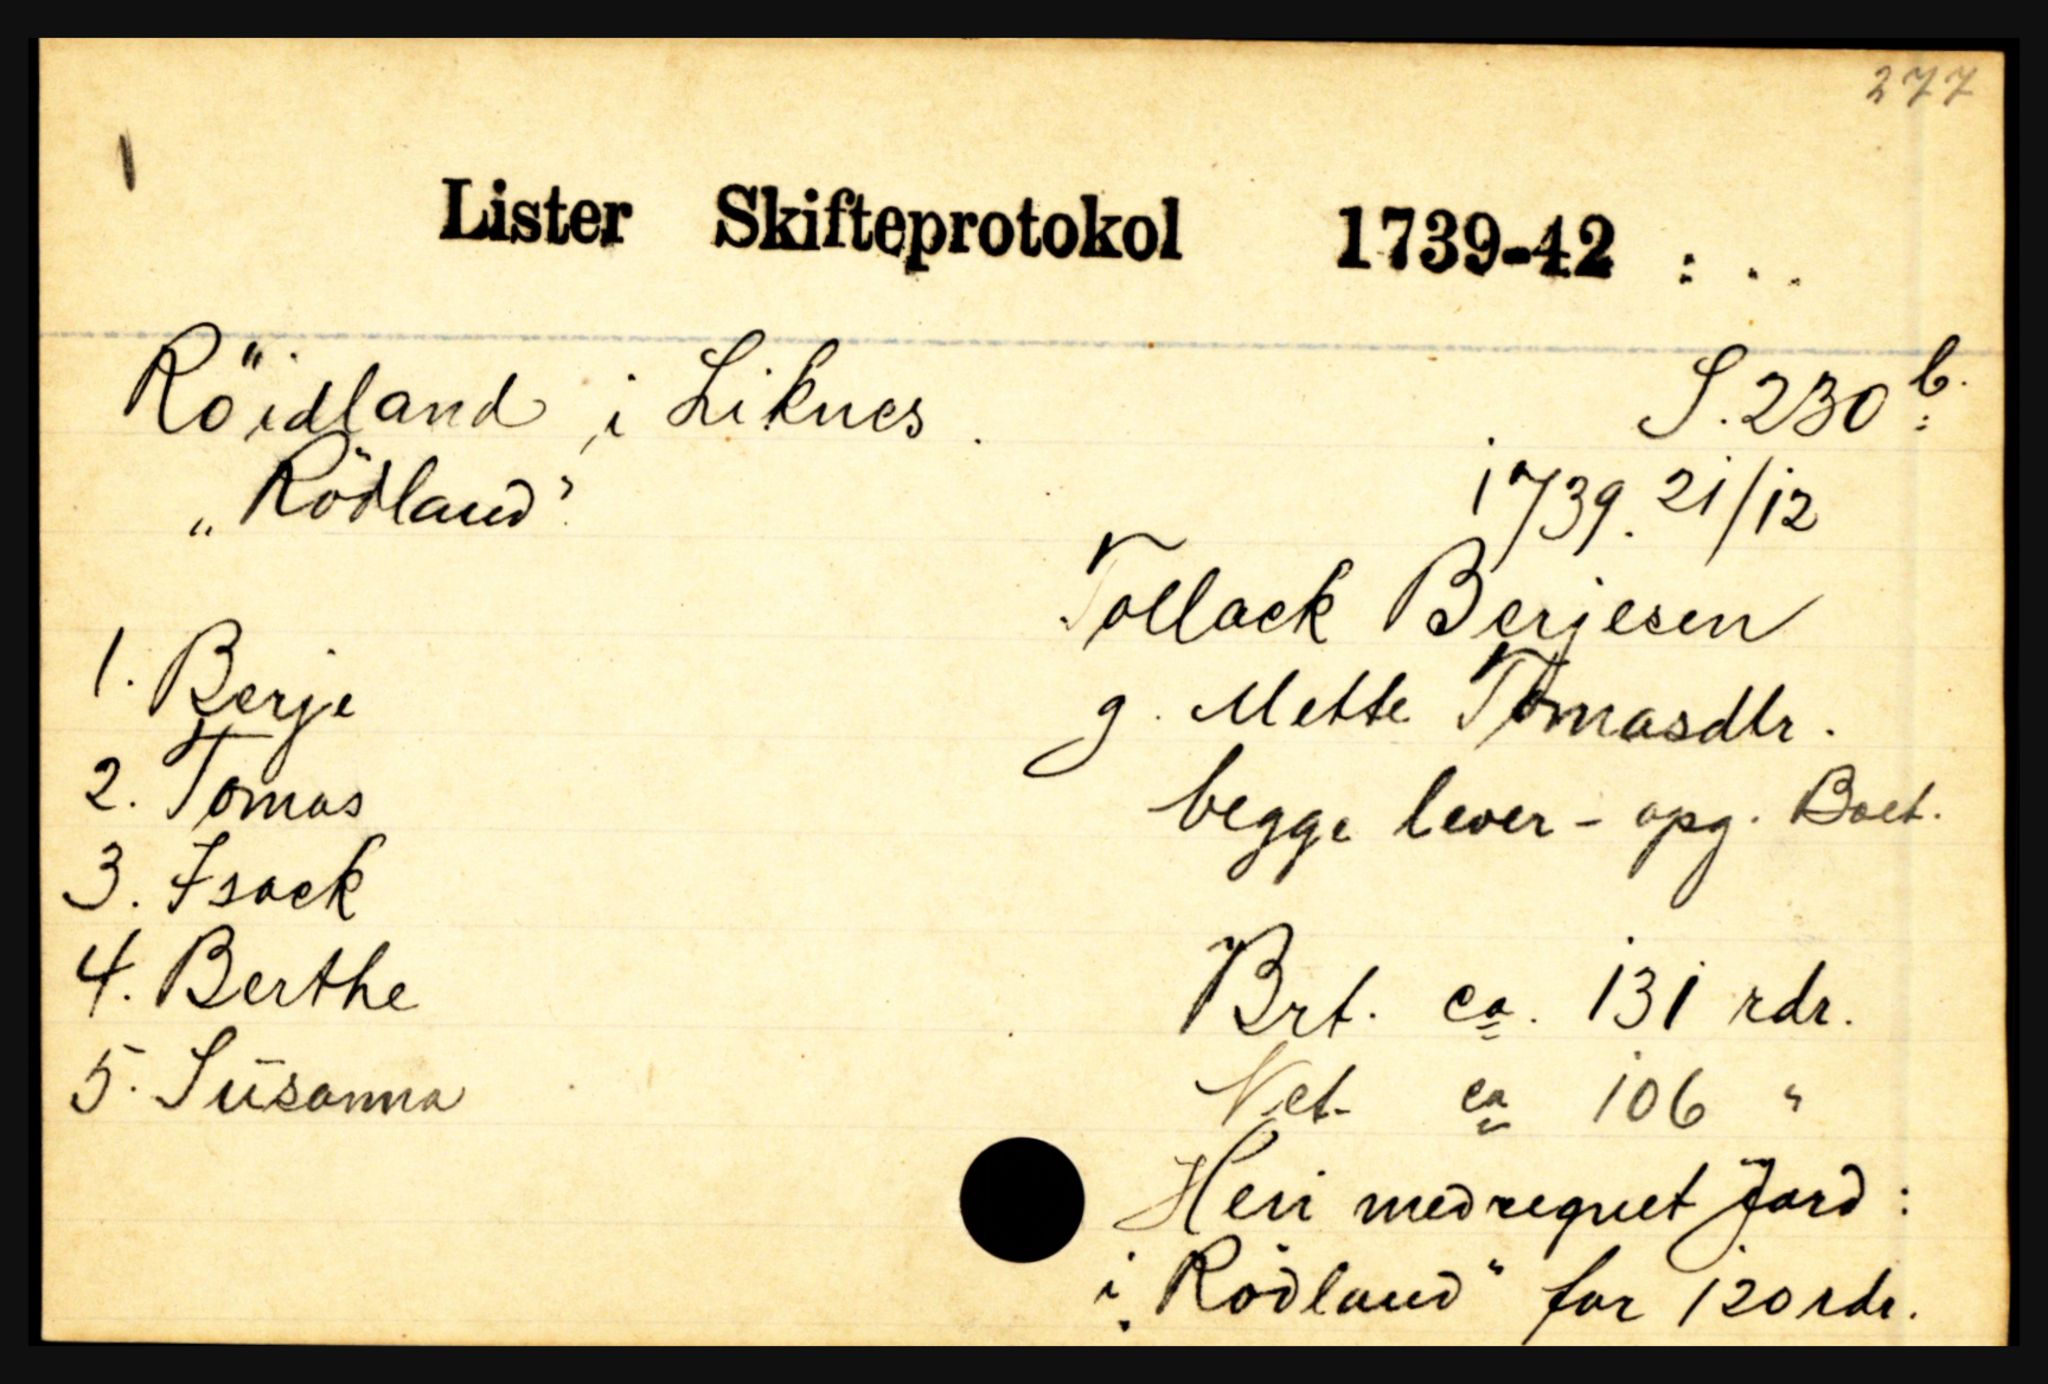 277
1
Lister Skifteprotokol 1739-42 : . .
Röidland i Liknes. S. 230 b.
„Rödland" 1739. 21/12
Tollack Berjesen
1. Berje g. Mette Tomasdtr.
2. Tomas begge lever - opg. Boet.
3. Isack
4. Berthe Brt. ca. 131 rdr.
5. Süsanna Net. ca 106 "
Heri medregnet Jord :
i „Rödland" for 120 rdr.